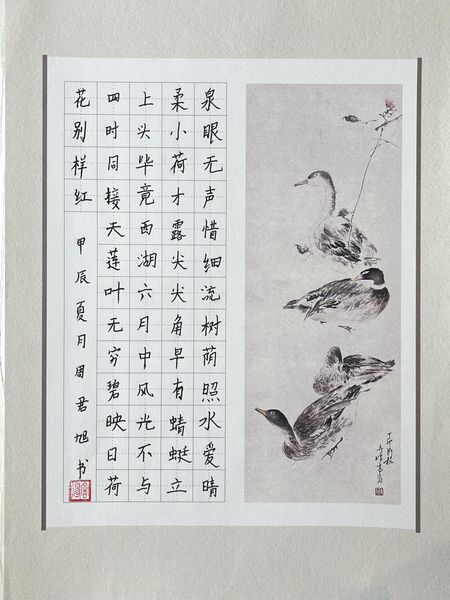 泉眼无声惜细流树荫照水爱晴
柔小荷才露尖尖角早有蜻蜓立
上头毕竟西湖六月中风光不与
四时同接天莲叶无穷碧映日荷
花别样红 甲辰夏月周君旭书